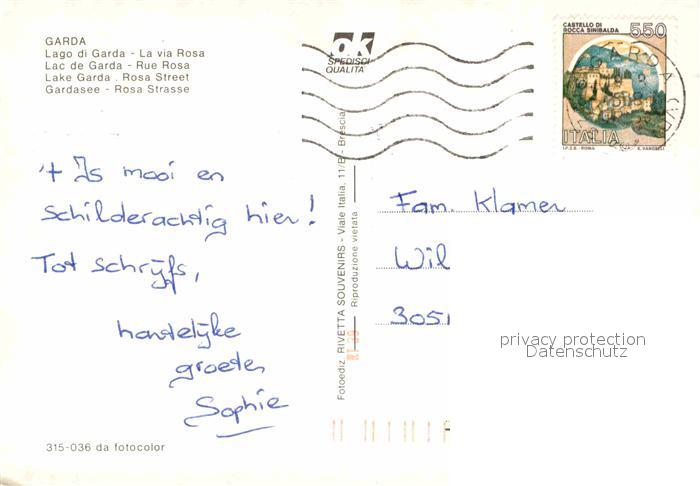 GARDA
Lago di Garda - La via Rosa
Lac de Garda - Rue Rosa
Lake Garda . Rosa Street
Gardasee - Rosa Strasse
ak
SPEDISCI
QUALITÀ
CASTELLO DI
ROCCA SINIBALDA
550
ITALIA
I.P.Z.S. - ROMA E. VANGELLI
't Is mooi en
schilderachtig hier!
Tot schrijfs,
hartelijke
groeten
Sophie
Fotoediz. RIVETTA SOUVENIRS - Viale Italia, 11/B - Brescia
Riproduzione vietata
Fam. Klamer
Wil
3051
privacy protection
Datenschutz
315-036 da fotocolor